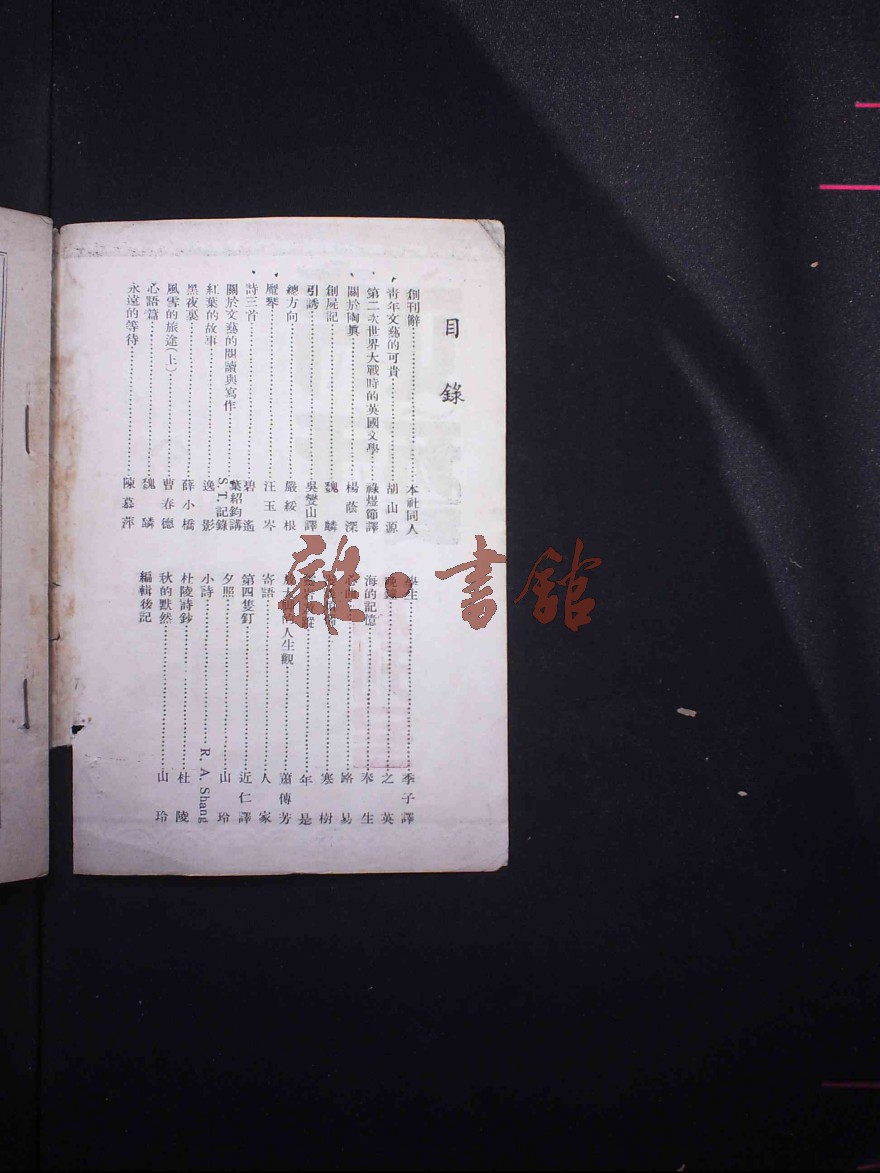 目錄
創刊辭 本社同人
青年文藝的可貴 胡山源
第二次世界大戰時的英國文學 祿煜節譯
關於陶真 楊蔭深
創屍記 魏驎
引誘 吳燮山譯
總方向 嚴綏根
魘琴 汪玉岑
詩三首 碧遙
關於文藝的閱讀與寫作 葉紹鈞講 S.T.記錄
紅葉的故事 逸影
黑夜裏 薛小橋
風雪的旅途(上) 曹春德
心語篇 魏驎
永遠的等待 陳慕萍
學生 季子譯
晚鐘 之英
海的記憶 本生
路易
寒樹
年是
的人生觀 蕭傳芳
寄語 人家
第四隻釘 近仁譯
夕照 山玲
小詩 R. A. Shang
杜陵詩鈔 杜陵
秋的默然 山玲
編輯後記
雜·書館